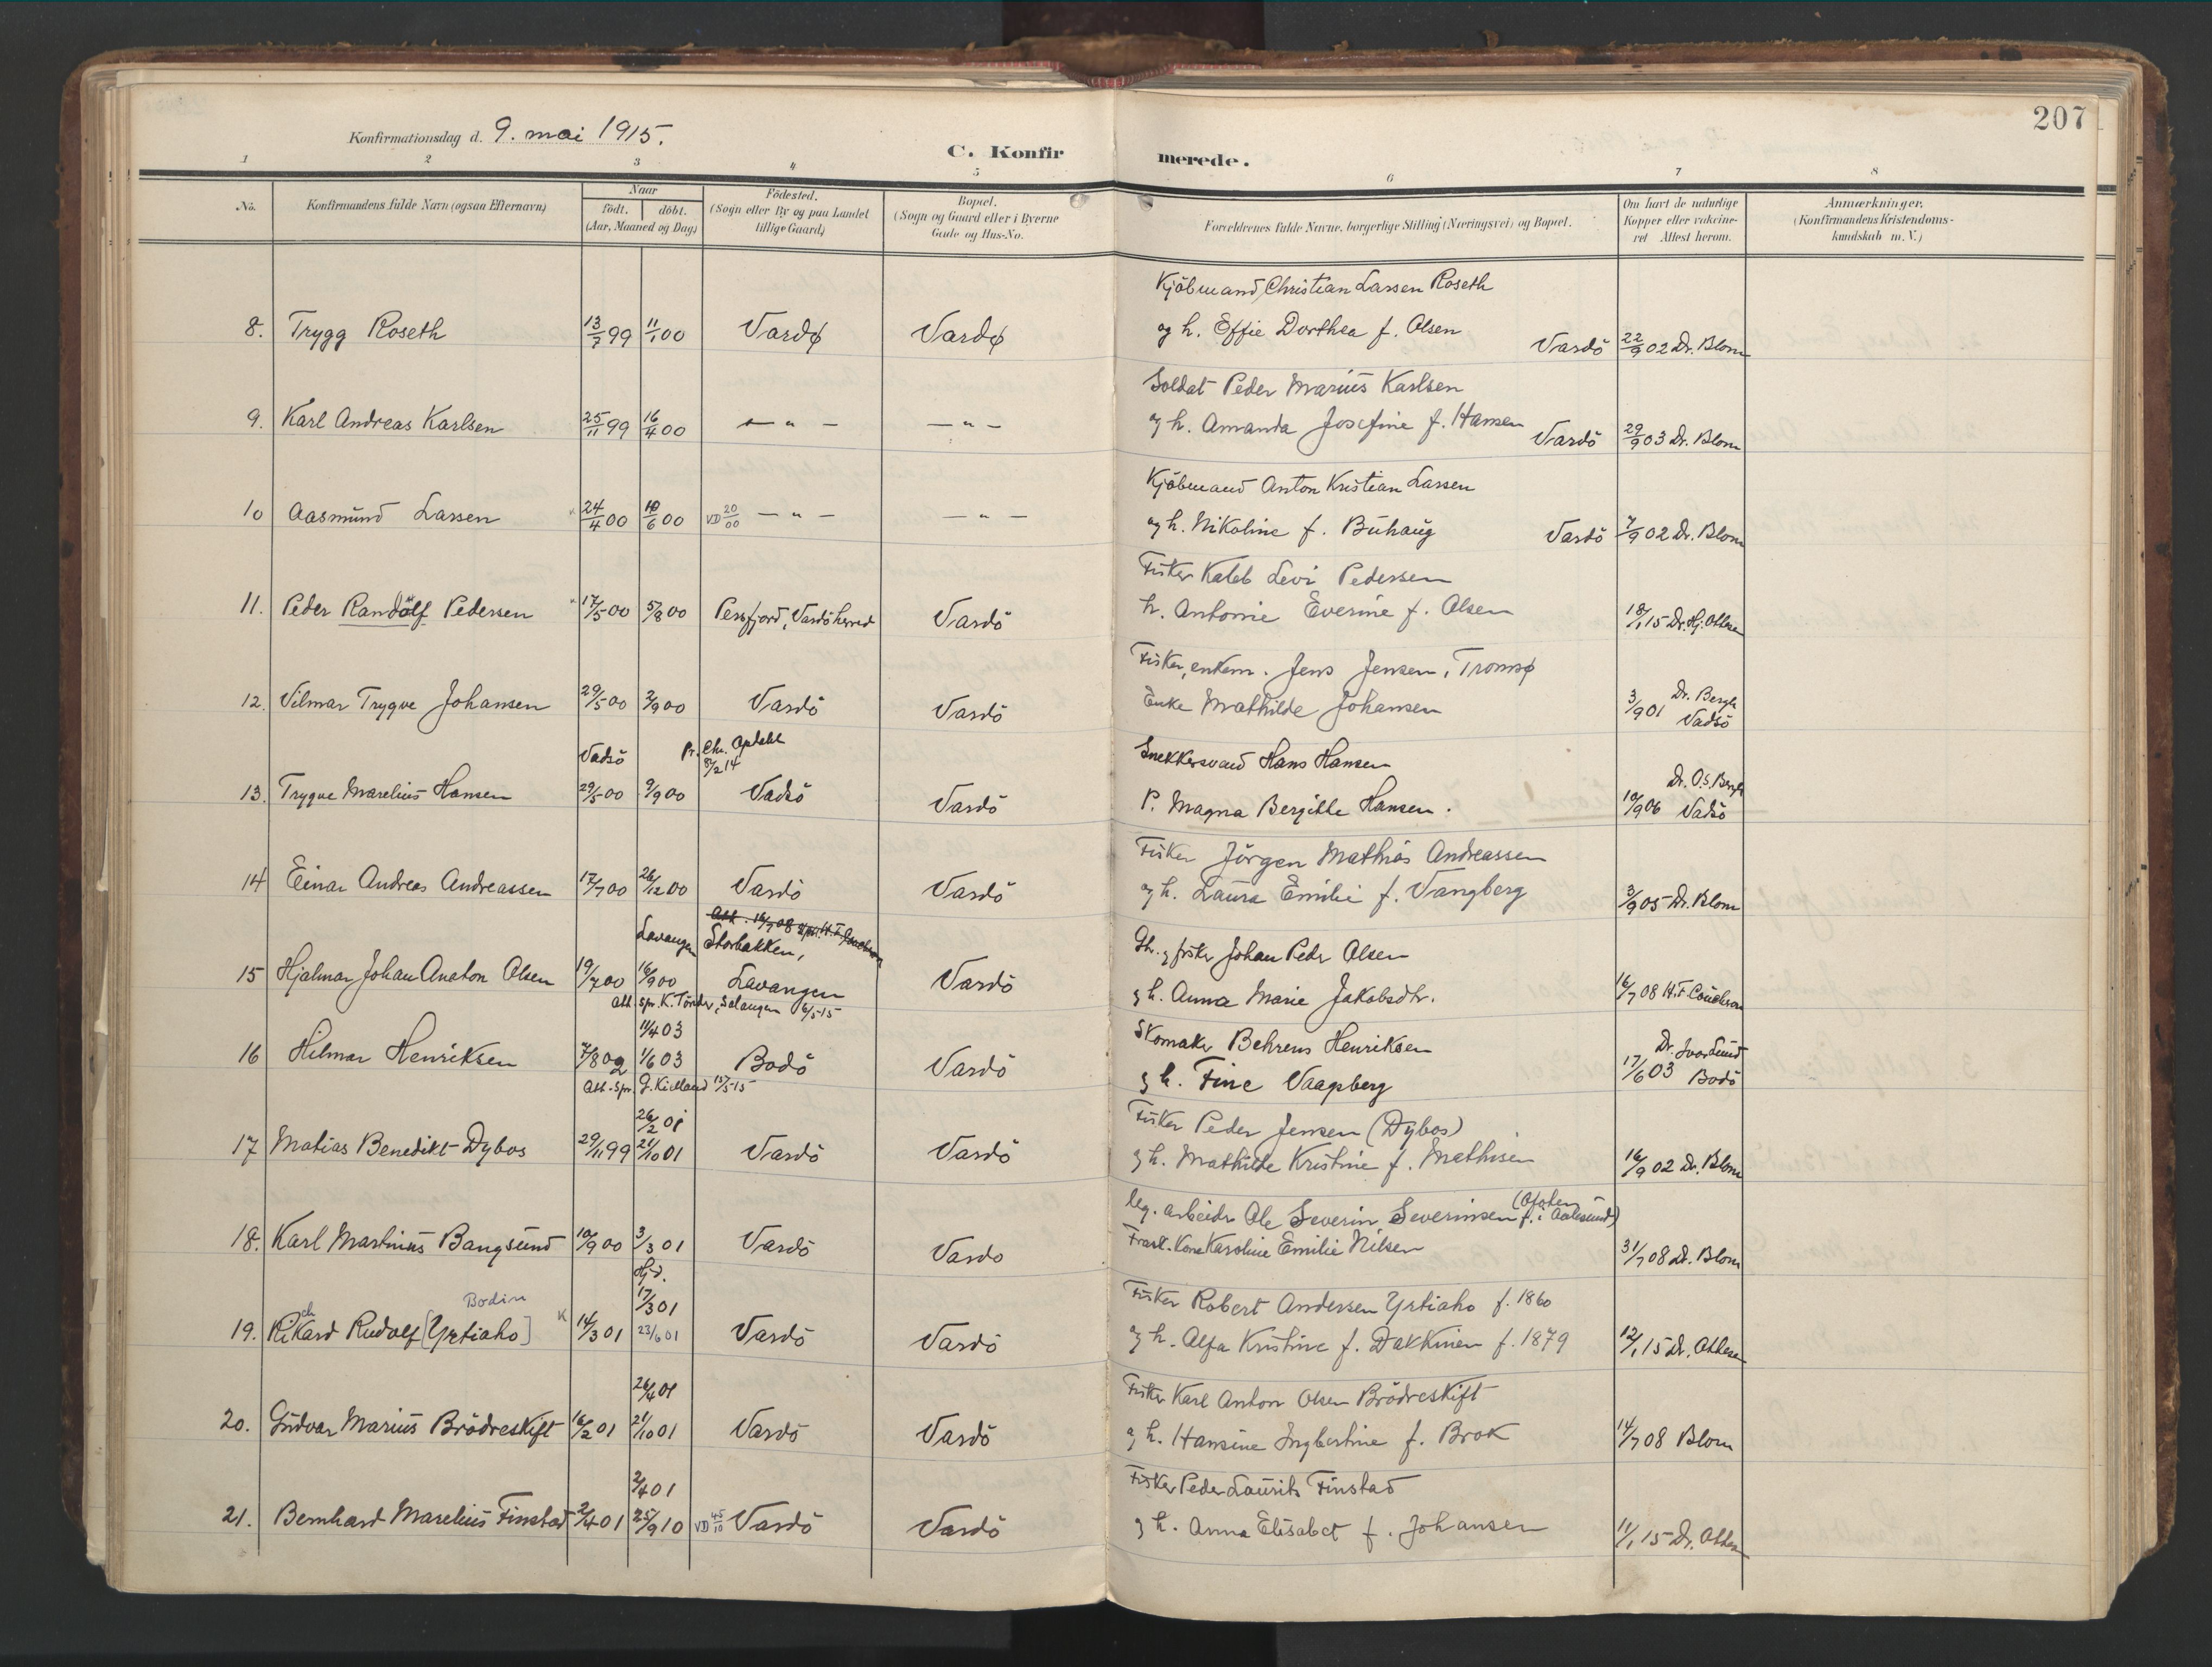 207
Konfirmationsdag d. 9. mai 1915.
C. Konfirmerede.
1 2 3 4 5 6 7 8
No.
Konfirmandens fulde Navn (ogsaa Efternavn)
Naar
födt. döbt.
(Aar, Maaned og Dag)
Födested.
(Sogn eller By og paa Landet
tillige Gaard)
Bopæl.
(Sogn og Gaard eller i Byerne
Gade og Hus-No.
Forældrenes fulde Navne, borgerlige Stilling (Næringsvei) og Bopæl.
Om havt de naturlige
Kopper eller vakcine-
ret Attest herom.
Anmærkninger.
(Konfirmandens Kristendoms-
kundskab m. V.)
Kjöbmand Christian Larsen Roseth
8. Trygg Roseth 13/7 99 11/1 00 Vardø Vardø og h. Effie Dorthea f. Olsen Vardö 22/9 02 Dr. Blom
Soldat Peder Marius Karlsen
9. Karl Andreas Karlsen 25/11 99 16/4 00 — " — — " — og h. Amanda Josefine f. Hansen Vardö 29/9 03 Dr. Blom
Kjöbmand Anton Kristian Larsen
10 Aasmund Larsen 24/4 00 10/6 00 VD 20/00 — " — — " — og h. Nikoline f. Buhaug Vardö 7/9 02 Dr. Blom
Fisker Kaleb Levi Pedersen
11. Peder Randolf Pedersen 17/5 00 5/8 00 Persfjord, Vardöherred Vardö h. Antonie Everine f. Olsen 18/1 15 Dr. Hj. Ottesen
Fisker, enkem. Jens Jensen, Tromsø
12. Vilmar Trygve Johansen 29/5 00 2/9 00 Vardö Vardö Enke Mathilde Johansen 3/9 01 Dr. Bergh Vadsö
Vadsö Pr. Chr. Opdahl 8/2 14
Snekkersvend Hans Hansen
13. Trygve Marelius Hansen 29/5 00 9/9 00 Vadsö Vardö P. Magna Bergitte Hansen. 10/9 06 Dr. O.S. Bergh Vadsö
Fisker Jörgen Mathias Andreassen
14 Einar Andreas Andreassen 17/7 00 26/12 00 Vardö Vardö og h. Laura Emilie f. Vangberg 3/9 05 Dr. Blom
Lavangen Storbakken,
Gbr. og fisker Johan Peder Olsen
15 Hjalmar Johan Anaton Olsen 19/7 00 16/9 00 Lavangen Vardö og h. Anna Marie Jakobsdtr. 16/7 08 H. F. Couchron
Att. spr. K. Tönder, Salangen 6/5 15
11/4 03
Skomaker Behrens Henriksen
16 Hilmar Henriksen 7/8 02 1/6 03 Bodö Vardö og h. Fine Vaagberg 17/6 03 Dr. Ivar Lund Bodö
Att. spr. G. Kielland 15/5 15
26/2 01
Fisker Peder Jensen (Dybos)
17 Matias Benedikt Dybos 29/11 99 21/10 01 Vardö Vardö og h. Mathilde Kristine f. Mathisen 16/9 02 Dr. Blom
arbeider Ole Severin Severinsen f. i Aalesund)
18. Karl Martinus Bangsund 10/9 00 3/3 01 Vardö Vardö Frask. Kone Karoline Emilie Nilsen 31/7 08 Dr. Blom
Hj.d. 17/3 01
Bodin
Fisker Robert Andersen Yrtiaho f. 1860
19. Rikard Rudolf [Yrtiaho] K 14/3 01 23/6 01 Vardö Vardö og h. Alfa Kristine f. Dakkinen f. 1879 12/1 15 Dr. Ottesen
26/4 01
Fisker Karl Anton Olsen Brödreskift
20. Gudvar Marius Brödreskift 16/2 01 21/10 01 Vardö Vardö og h. Hansine Ingbertine f. Brok 14/7 08 Blom
2/4 01
Fisker Peder Laurits Finstad
21. Bernhard Marelius Finstad 2/4 01 25/9 10 VD 45/10 Vardö Vardö og h. Anna Elisabet f. Johansen 11/1 15 Dr. Ottesen